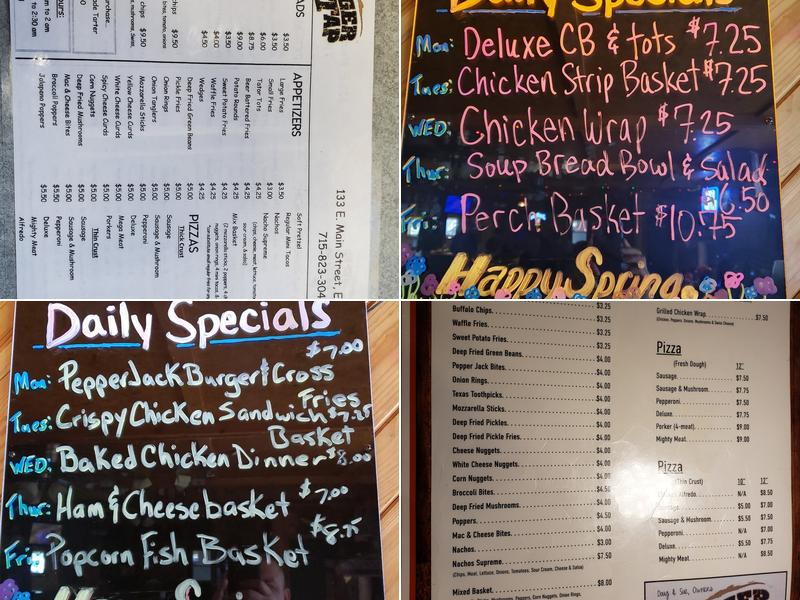 133 E. Main Street, E
715-823-304
APPETIZERS
Large Fries $3.50
Small Fries $3.00
Tator Tots $4.25
Beer Battered Fries $4.25
Potato Rounds $4.25
Sweet Potato Fries $4.25
Waffle Fries $4.25
Wedges $4.25
Deep Fried Green Beans $5.00
Pickle Fries $5.00
Onion Rings $5.00
Onion Tanglers $5.00
Mozzarella Sticks $5.00
Yellow Cheese Curds $5.00
White Cheese Curds $5.00
Spicy Cheese Curds $5.00
Corn Nuggets $5.00
Deep Fried Mushrooms $5.00
Mac & Cheese Bites $5.00
Broccoli Poppers $5.50
Jalapeno Poppers $5.50
Soft Pretzel
Regular Mini Tacos
Nachos
Nacho Supreme
Mix Basket
PIZZAS
Thick Crust
Sausage
Sausage & Mushroom
Pepperoni
Deluxe
Mega Meat
Porkers
Thin Crust
Sausage
Sausage & Mushroom
Pepperoni
Deluxe
Mighty Meat
Alfredo
Daily Specials
Mon: Deluxe CB & tots $7.25
Tues: Chicken Strip Basket $7.25
WED: Chicken Wrap $7.25
Thur: Soup Bread Bowl & Salad
6.50
Fri: Perch Basket $10.75
Happy Spring
Daily Specials
$7.00
Mon: PepperJack Burger & Cross
Fries
Tues: Crispy Chicken Sandwich $7.25
Basket
WED: Baked Chicken Dinner $8.00
Thur: Ham & Cheese basket $7.00
Fri: Popcorn Fish Basket $8.75
Buffalo Chips $3.25
Waffle Fries $3.25
Sweet Potato Fries $3.25
Deep Fried Green Beans $4.00
Pepper Jack Bites $4.00
Onion Rings $4.00
Texas Toothpicks $4.00
Mozzarella Sticks $4.00
Deep Fried Pickles $4.00
Deep Fried Pickle Fries $4.00
Cheese Nuggets $4.00
White Cheese Nuggets $4.00
Corn Nuggets $4.00
Broccoli Bites $4.50
Deep Fried Mushrooms $4.00
Poppers $4.50
Mac & Cheese Bites $4.00
Nachos $3.00
Nachos Supreme $7.50
(Chips, Meat, Lettuce, Onions, Tomatoes, Sour Cream, Cheese & Salsa)
Mixed Basket $8.00
Grilled Chicken Wrap $7.50
Pizza
(Fresh Dough) 12"
Sausage $7.50
Sausage & Mushroom $7.75
Pepperoni $7.50
Deluxe $7.75
Porker (4-meat) $9.00
Mighty Meat $9.00
Pizza
(Thin Crust) 10" 12"
Chicken Alfredo N/A $8.50
Sausage $5.00 $7.00
Sausage & Mushroom $5.50 $7.50
Pepperoni N/A $7.00
Deluxe $5.50 $7.75
Mighty Meat N/A $8.50